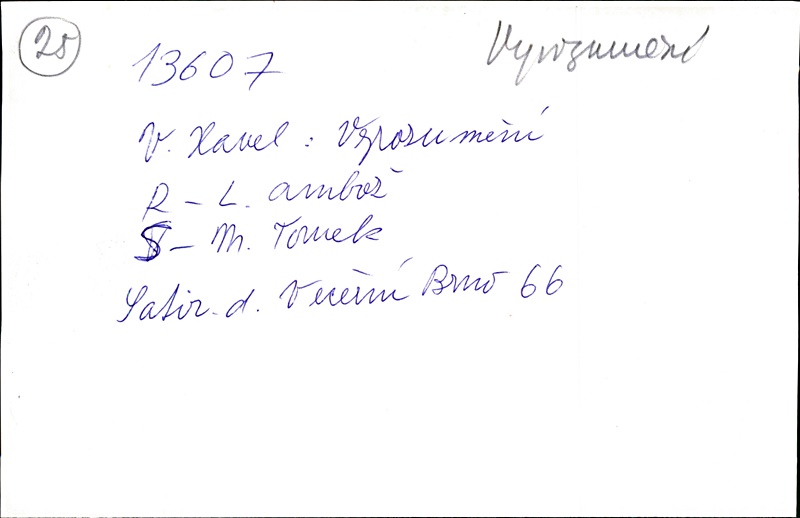 25
Vyrozumění
13607
V. Havel: Vyrozumění
R - L. Ambož
S - M. Tomek
Satir. d. Večerní Brno 66